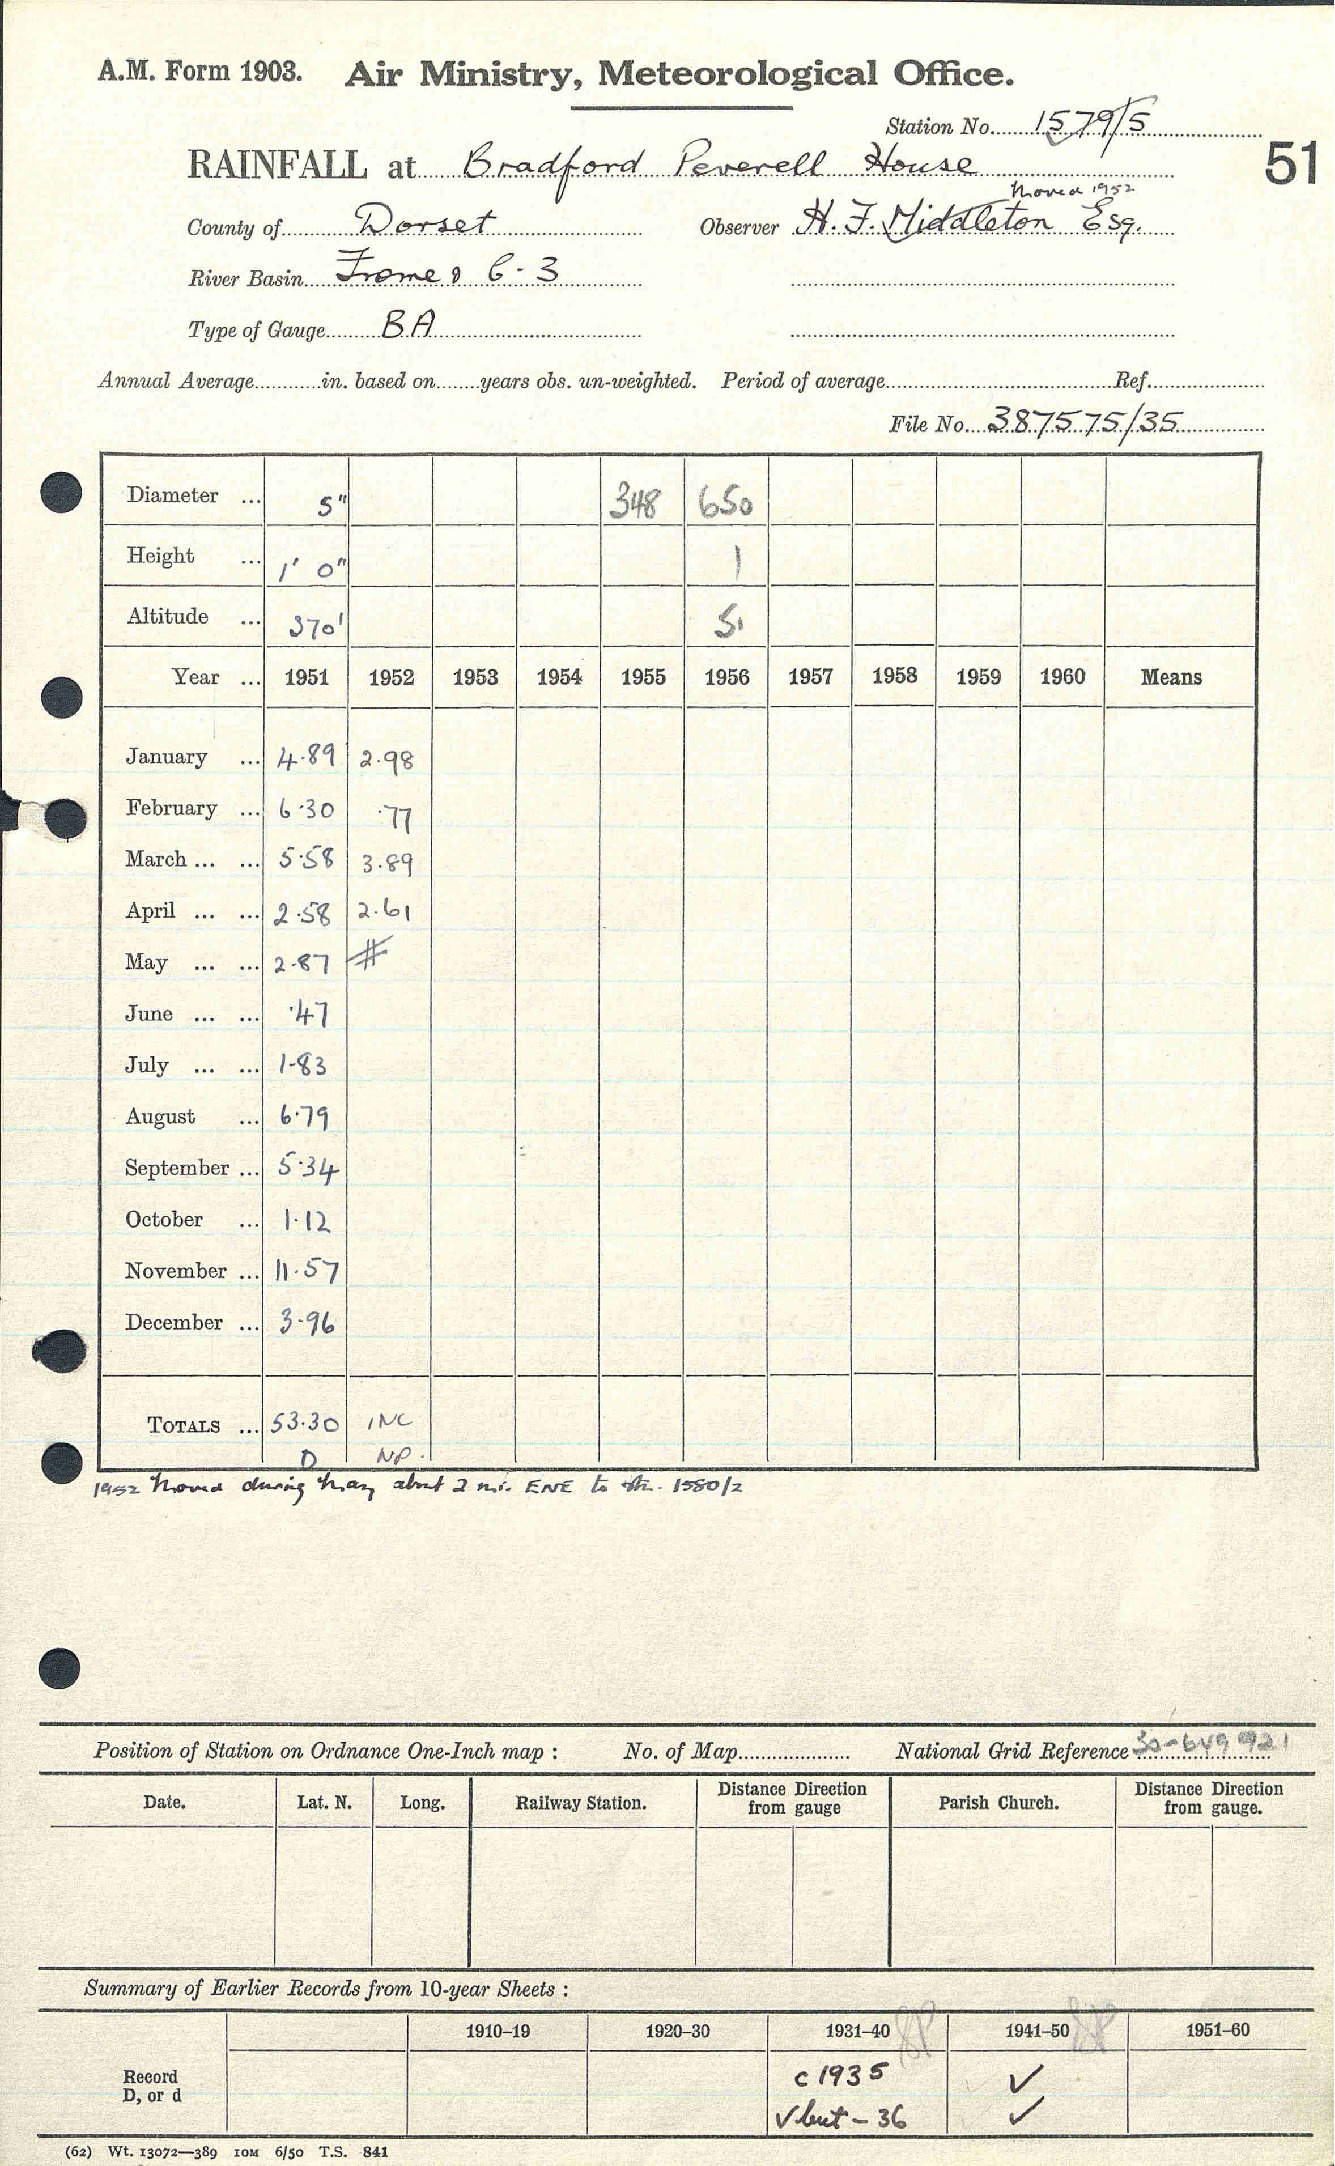 A.M. Form 1903. Air Ministry, Meteorological Office.
Station No. 1579/5
RAINFALL at Bradford Peverell House
51
moved 1952
County of Dorset Observer H. F. Middleton Esq.
River Basin Frome 6-3
Type of Gauge BA
Annual Average in. based on years obs. un-weighted. Period of average Ref.
File No. 387575/35
Diameter ... 5" 348 650
Height ... 1' 0" 1
Altitude ... 370' 51
Year ... 1951 1952 1953 1954 1955 1956 1957 1958 1959 1960 Means
January ... 4.89 2.98
February ... 6.30 .77
March ... ... 5.58 3.89
April ... ... 2.58 2.61
May ... ... 2.87 #
June ... ... .47
July ... ... 1.83
August ... 6.79
September ... 5.34
October ... 1.12
November ... 11.57
December ... 3.96
TOTALS ... 53.30 INC
D NP.
1952 Moved during May about 2 mi. ENE to stn. 1580/2
Position of Station on Ordnance One-Inch map : No. of Map National Grid Reference 30-649 921
Date. Lat. N. Long. Railway Station. Distance Direction from gauge Parish Church. Distance Direction from gauge.
Summary of Earlier Records from 10-year Sheets :
1910–19 1920–30 1931–40 1941–50 1951–60
Record c 1935 ✓
D, or d ✓ but - 36 ✓
(62) Wt. 13072—389 10M 6/50 T.S. 841